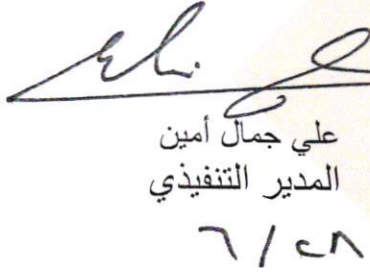 علي جمال أمين
المدير التنفيذي
٦/٢٨